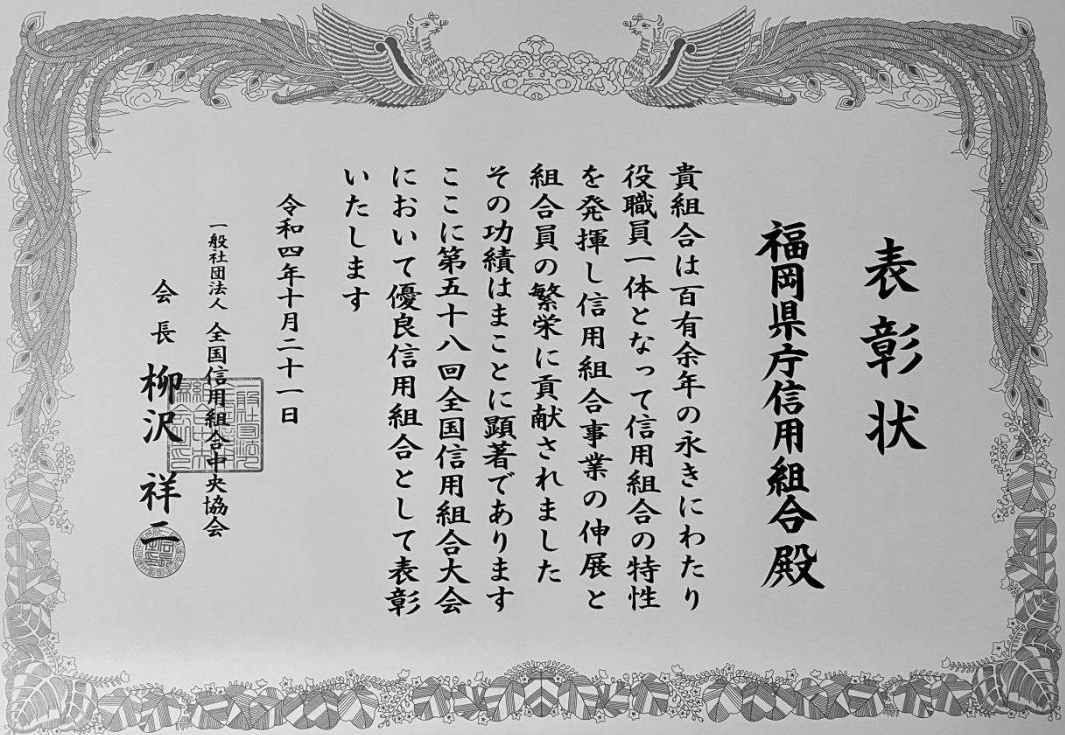 表彰状
福岡県庁信用組合殿
貴組合は百有余年の永きにわたり
役職員一体となって信用組合の特性
を発揮し信用組合事業の伸展と
組合員の繁栄に貢献されました
その功績はまことに顕著であります
ここに第五十八回全国信用組合大会
において優良信用組合として表彰
いたします
令和四年十月二十一日
一般社団法人 全国信用組合中央協会
会長 柳沢 祥二